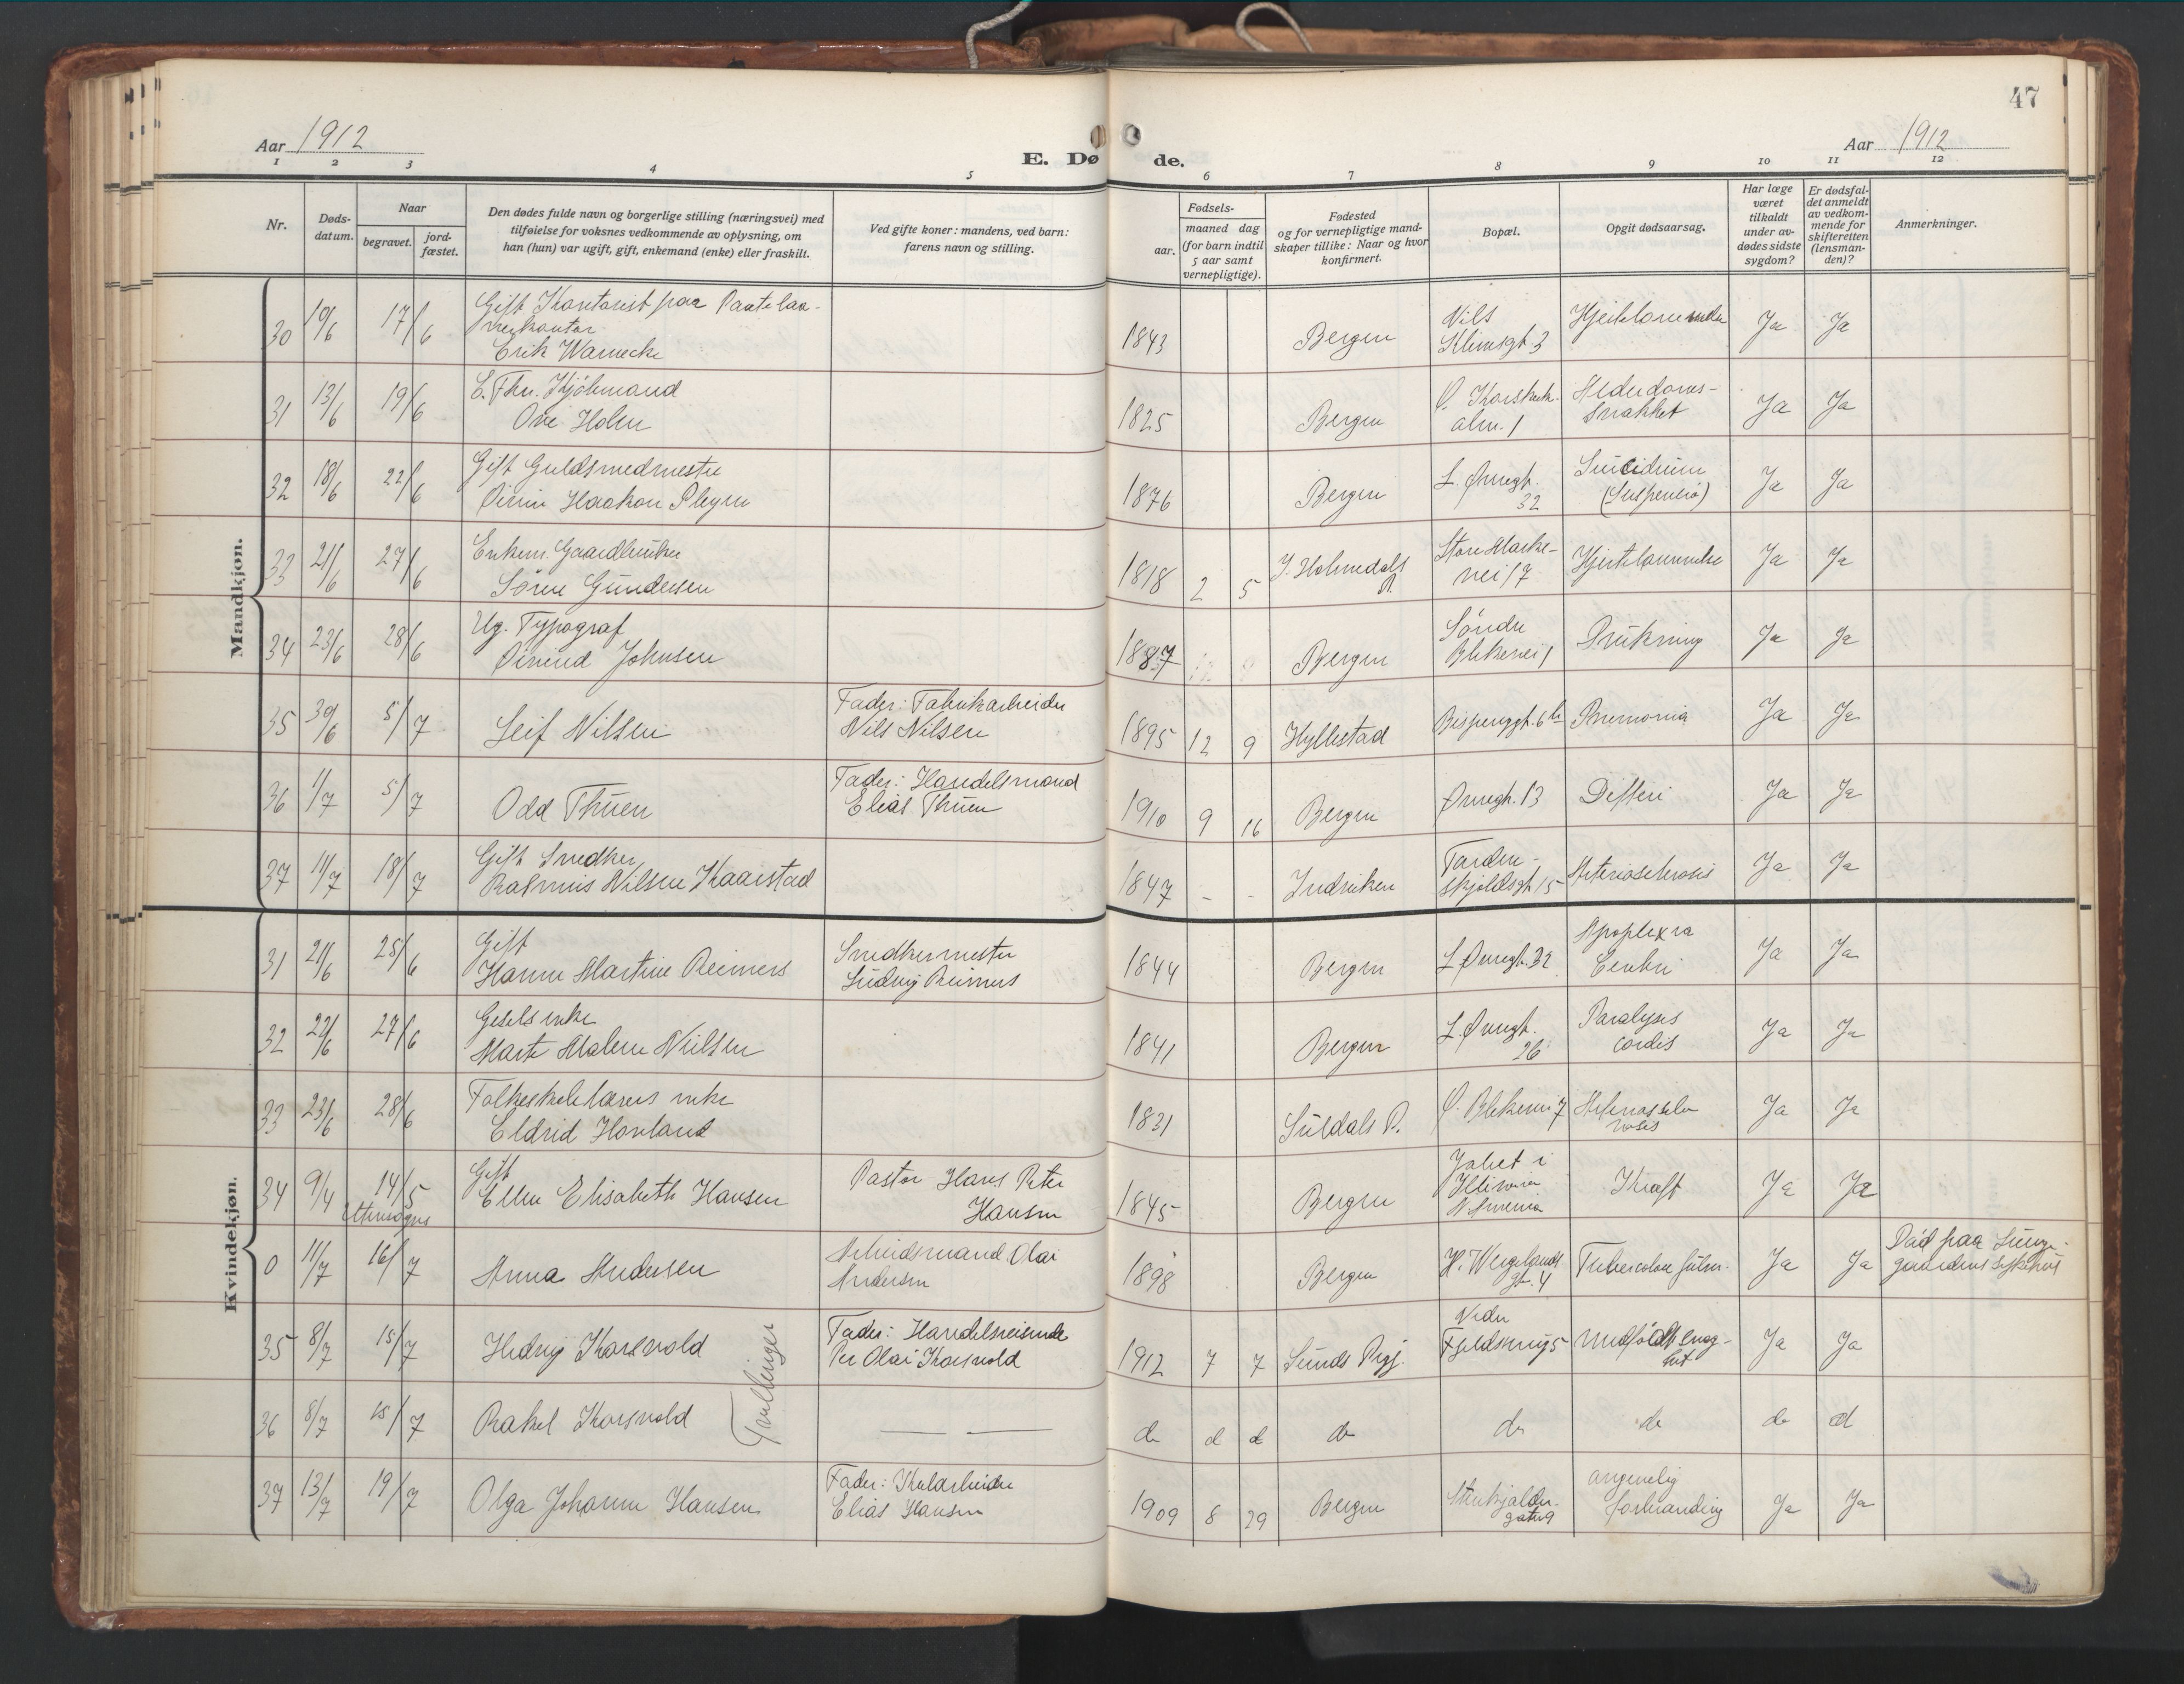 47
Aar 1912
E. Dø de.
Aar 1912
1 2 3 4 5 6 7 8 9 10 11 12
Nr.
Døds-
datum.
Naar
begravet.
jord-
fæstet.
Den dødes fulde navn og borgerlige stilling (næringsvei) med
tilføielse for voksnes vedkommende av oplysning, om
han (hun) var ugift, gift, enkemand (enke) eller fraskilt.
Ved gifte koner: mandens, ved barn:
farens navn og stilling.
Fødsels-
aar.
maaned dag
(for barn indtil
5 aar samt
vernepligtige).
Fødested
og for vernepligtige mand-
skaper tillike: Naar og hvor
konfirmert.
Bopæl.
Opgit dødsaarsag.
Har læge
været
tilkaldt
under av-
dødes sidste
sygdom?
Er dødsfal-
det anmeldt
av vedkom-
mende for
skifteretten
(lensman-
den)?
Anmerkninger.
Mandkjøn.
30 10/6 17/6 Gift Kontorist paa Pantelaa-
nerkontor
Erik Warnecke 1843 Bergen Nils
Klimsgt. 3 Hjertelammelse Ja Ja
31 13/6 19/6 E. Fhv. Kjøbmand
Ove Holm 1825 Bergen Ø. Korskirk.
alm. 1 Alderdoms-
svakhet Ja Ja
32 18/6 22/6 Gift Guldsmedmester
Haakon 1876 Bergen L. Øvregt.
32 Suicidium
(Suspensio) Ja Ja
33 21/6 27/6 Enkem. Gaardbruker
Sören Gundersen 1818 2 5 Y. Holmedals
P. Store Marke-
vei 17 Hjertelammelse Ja Ja
34 23/6 28/6 Ug. Typograf
Øivind Johnsen 1887 Bergen Söndre
Blekevei 1 Drukning Ja Ja
35 30/6 5/7 Leif Nilsen Fader: Fabrikarbeider
Nils Nilsen 1895 12 9 Hyllestad Bispenggt. 6 b Pnemonia Ja Ja
36 1/7 5/7 Odd Thuen Fader: Handelsmand
Elias Thuen 1910 9 16 Bergen Øvregt. 13 Difteri Ja Ja
37 11/7 18/7 Gift Snedker
Rasmus Nilsen Kaarstad 1847 - - Indviken Torden-
skjoldsgt. 15 Arteriosclerosis Ja Ja
Kvindekjøn.
31 21/6 25/6 Gift
Hanne Martine Reimers Snedkermester
Ludvig Reimers 1844 Bergen L. Øvregt. 32 Apoplexia
Cerebri Ja Ja
32 22/6 27/6 Gesels enke
Marte Malene Nilsen 1841 Bergen L. Øvregt.
26 Paralyses
cordis Ja Ja
33 23/6 28/6 Folkeskolelærers enke
Eldrid Hovland 1831 Suldals P. Ø. Blekevei 7 Arterioscle
rosis Ja Ja
34 9/4 14/5 Gift
Ellen Elisabeth Hansen Pastor Hans Peter
Hansen 1845 Bergen i
Kræft Ja Ja
0 11/7 16/7 Anna Andersen Arbeidsmand Olai
Andersen 1898 Bergen H. Wergelands
gt. 4 Tuberculose pulm. Ja Ja Död paa Lunge-
gaardens Sykehus
35 8/7 15/7 Hedvig Korsvold Fader: Handelsreisende
Per Olai Korsvold 1912 7 7 Sunds Prgj. Nedre
Fjeldsmug 5 medfödt svag-
het Ja Ja
Tvillinger
36 8/7 15/7 Rakel Korsvold — — do d d do do do do d
37 13/7 19/7 Olga Johanne Hansen Fader: Kularbeider
Elias Hansen 1909 8 29 Bergen Stenkjelder-
gaten 9 angivelig
forbrænding Ja Ja